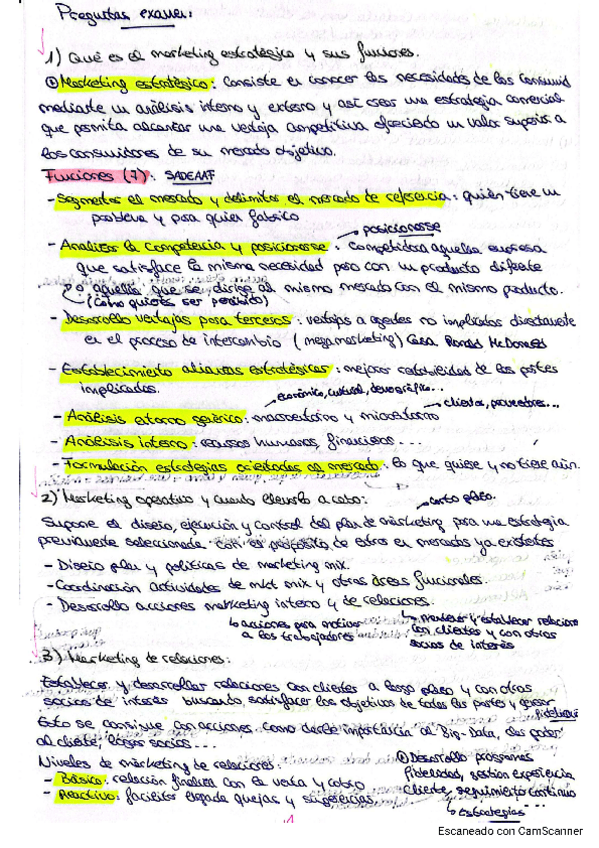 Preguntas examen:
1) Qué es el marketing estratégico y sus funciones.
Marketing estratégico: Consiste en conocer las necesidades de los consumid
mediante un análisis interno y externo y así crear una estrategia comercial
que permita alcanzar una ventaja competitiva ofreciendo un valor superior a
los consumidores de su mercado objetivo.
Funciones (7): SADEAAF
- Segmentar el mercado y delimitar el mercado de referencia: quién tiene un
problema y para quien fabrico
posicionarse
- Analizar la competencia y posicionarse: Competidora aquella empresa
que satisface la misma necesidad pero con un producto diferente
o aquella que se dirige al mismo mercado con el mismo producto.
(Cómo quieres ser percibido)
- Desarrollo ventajas para terceros: ventajas a agentes no implicados directamente
en el proceso de intercambio (megamarketing) Casa Ronald McDonald
- Establecimiento alianzas estratégicas: mejorar rentabilidad de las partes
implicadas.
económico, cultural, demográfico...
clientes, proveedores...
- Análisis entorno genérico: macroentorno y microentorno
- Análisis interno: recursos humanos, financieros...
- Formulación estrategias orientadas al mercado: lo que quiere y no tiene aún.
2) Marketing operativo y cuento llevarlo a cabo:
corto plazo.
Supone el diseño, ejecución y control del plan de marketing para una estrategia
previamente seleccionada con el propósito de estar en mercados ya existentes
- Diseño plan y políticas de marketing mix.
- Coordinación actividades de mkt mix y otras áreas funcionales.
- Desarrollo acciones marketing interno y de relaciones.
acciones para motivar
a los trabajadores
mantener y establecer relación
con clientes y con otros
socios de interés
3) Marketing de relaciones:
Establecer y desarrollar relaciones con clientes a largo plazo y con otros
socios de interés buscando satisfacer los objetivos de todas las partes y generar
fidelización
Esto se consigue con acciones como darle importancia al Big-Data, dar poder
al cliente, lograr socios...
Niveles de marketing de relaciones:
- Básico: relación finaliza con la venta y cobro
- Reactivo: facilitar llegada quejas y sugerencias.
Desarrollo programas
fidelidad, gestión experiencia
cliente, seguimiento continuo
estrategias
Escaneado con CamScanner